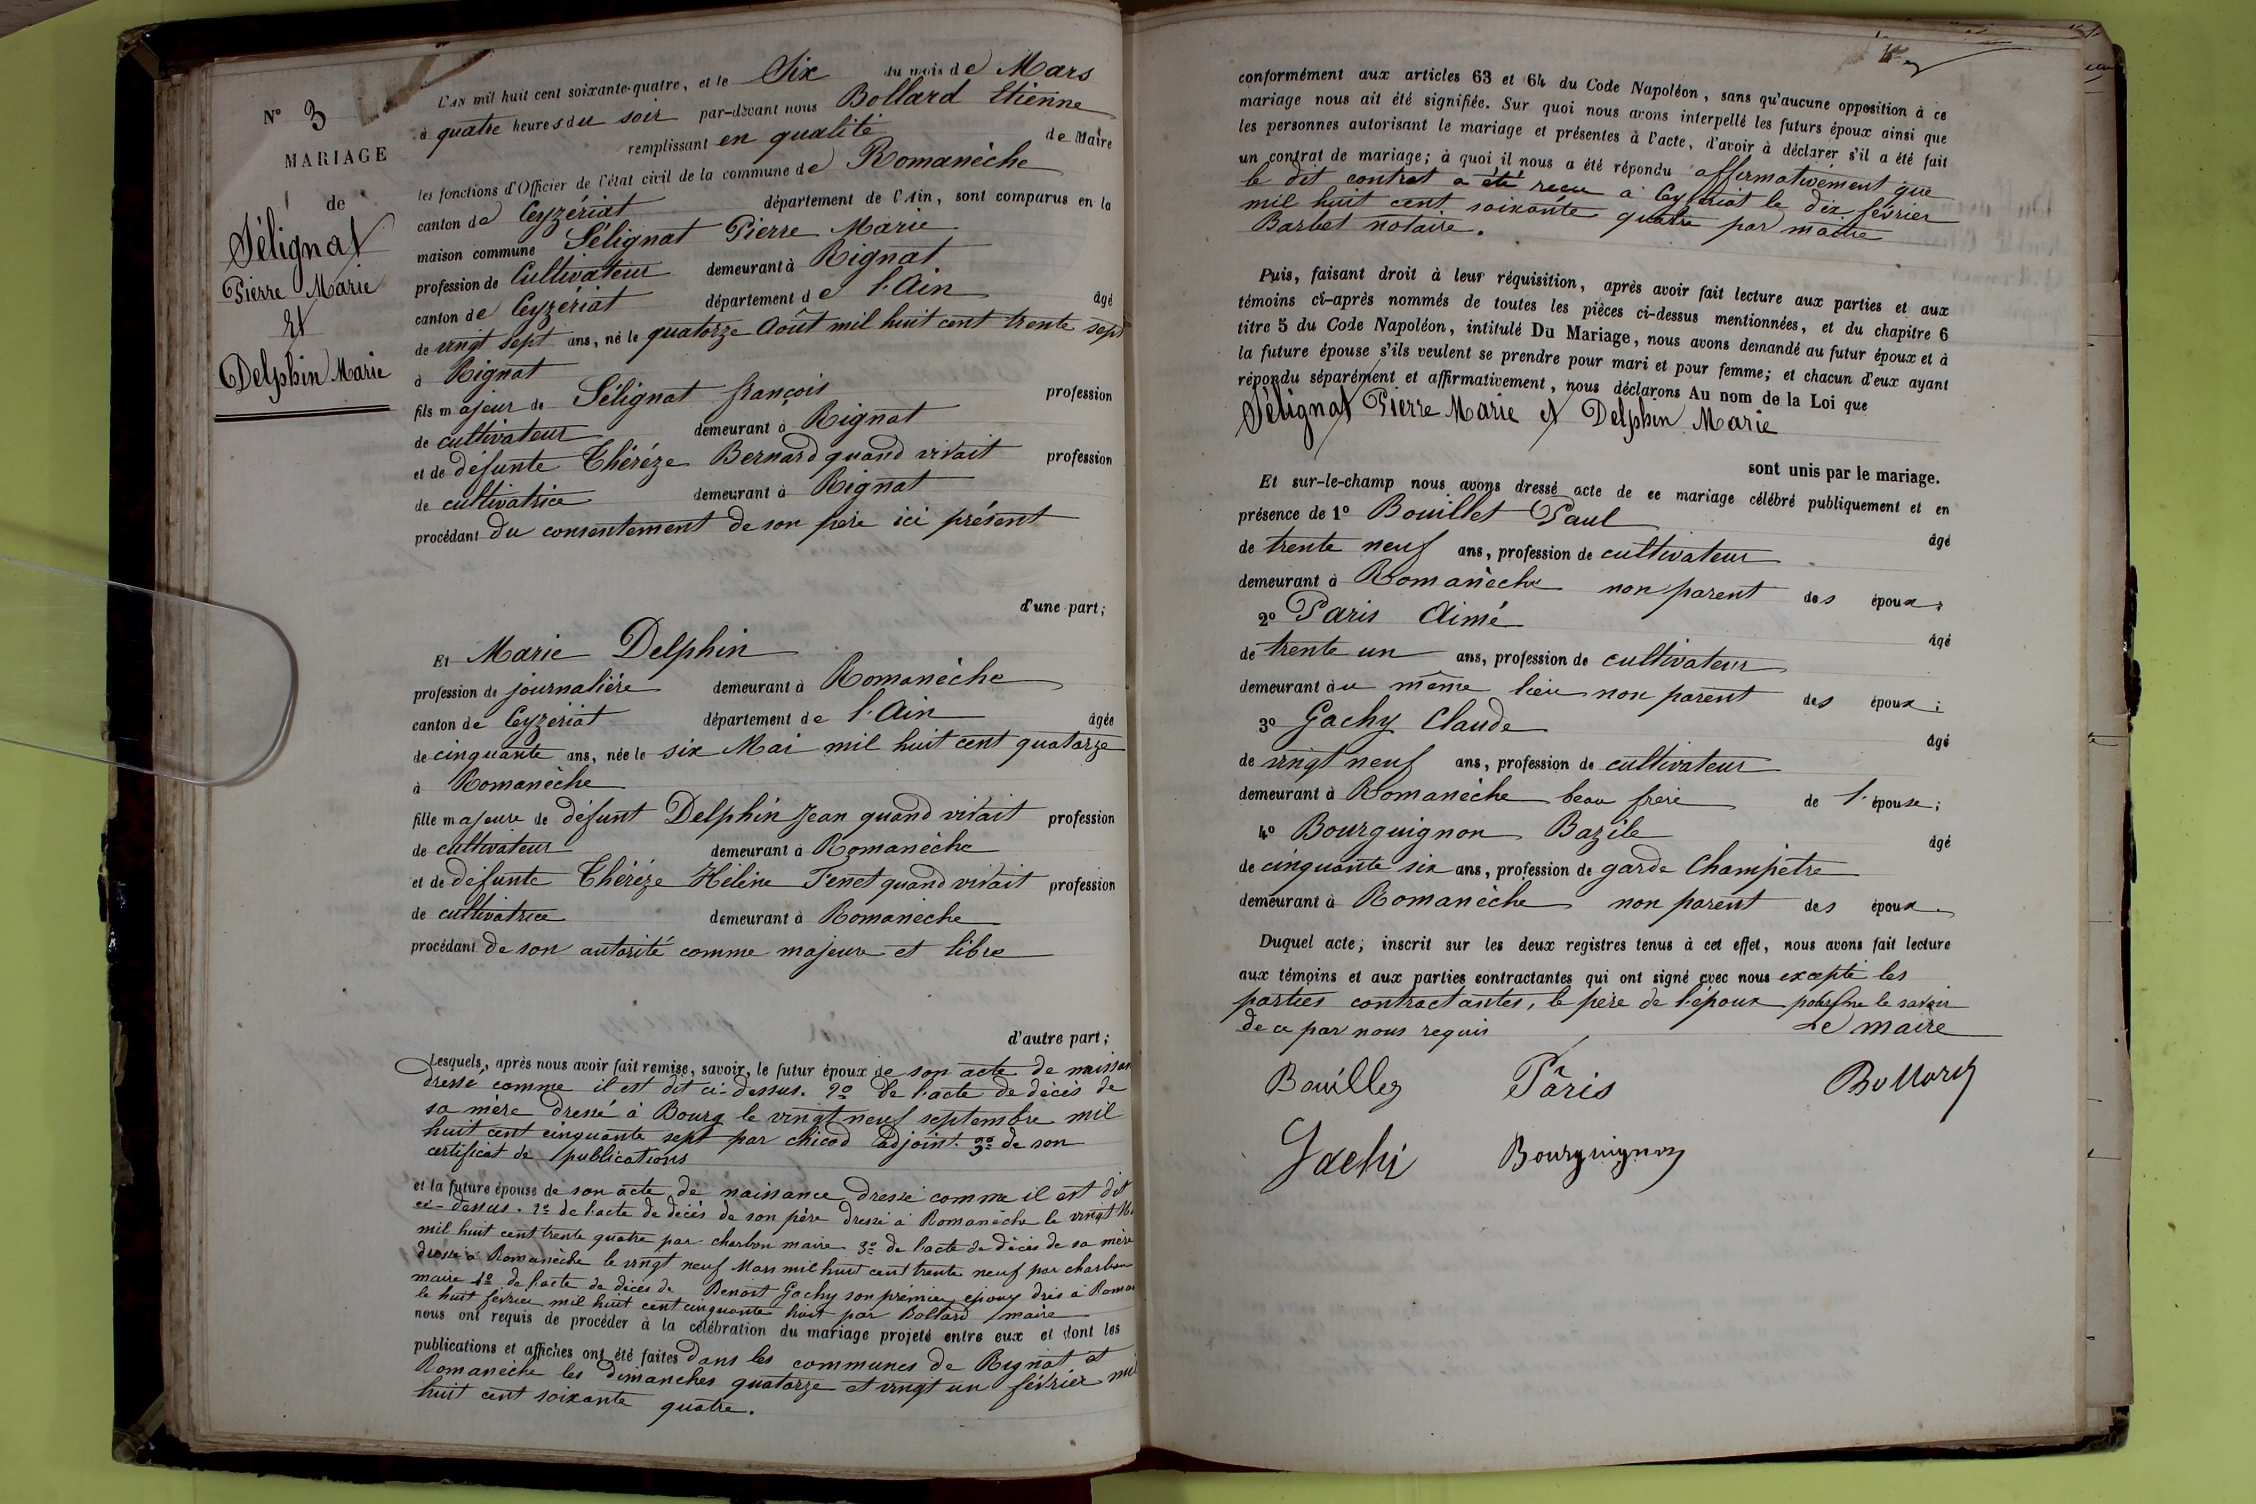 N° 3
MARIAGE
de
Sélignat
Pierre Marie
et
Delphin Marie
L'AN mil huit cent soixante-quatre, et le Six du mois de Mars
à quatre heures du soir par-devant nous Bollard Etienne
remplissant en qualité de Maire
les fonctions d'Officier de l'état civil de la commune de Romanèche
canton de Ceyzériat département de l'Ain, sont comparus en la
maison commune Sélignat Pierre Marie
profession de Cultivateur demeurant à Rignat
canton de Ceyzériat département de l'Ain âgé
de vingt sept ans, né le quatorze Août mil huit cent trente sept
à Rignat
fils majeur de Sélignat françois profession
de cultivateur demeurant à Rignat
et de défunte Théréze Bernard quand vivait profession
de cultivatrice demeurant à Rignat
procédant du consentement de son père ici présent
d'une part;
Et Marie Delphin
profession de journalière demeurant à Romanèche
canton de Ceyzériat département de l'Ain âgée
de cinquante ans, née le six Mai mil huit cent quatorze
à Romanèche
fille majeure de défunt Delphin Jean quand vivait profession
de cultivateur demeurant à Romanèche
et de défunte Théréze Hélène Tenet quand vivait profession
de cultivatrice demeurant à Romanèche
procédant de son autorité comme majeure et libre
d'autre part;
Lesquels, après nous avoir fait remise, savoir, le futur époux de son acte de naissan
dressé comme il est dit ci-dessus. 2º de l'acte de décès de
sa mère dressé à Bourg le vingt neuf septembre mil
huit cent cinquante sept par chicod adjoint. 3º de son
certificat de publications
et la future épouse de son acte de naissance dressé comme il est dit
ci-dessus. 2º de l'acte de décès de son père dressé à Romanèche le vingt
mil huit cent trente quatre par charbon maire 3º de l'acte de décès de sa mère
dressé à Romanèche le vingt neuf Mars mil huit cent trente neuf par charbon
maire 4º de l'acte de décès de Benoit Gachy son prémier époux drés à Roman
le huit février mil huit cent cinquante huit par Bollard maire
nous ont requis de procéder à la célébration du mariage projeté entre eux et dont les
publications et affiches ont été faites dans les communes de Rignat et
Romanèche les dimanches quatorze et vingt un février mil
huit cent soixante quatre.
conformément aux articles 63 et 64 du Code Napoléon, sans qu'aucune opposition à ce
mariage nous ait été signifiée. Sur quoi nous avons interpellé les futurs époux ainsi que
les personnes autorisant le mariage et présentes à l'acte, d'avoir à déclarer s'il a été fait
un contrat de mariage; à quoi il nous a été répondu affirmativement que
le dit contrat a été reçu à Ceyzériat le dix février
mil huit cent soixante quatre par maitre
Barbet notaire.
Puis, faisant droit à leur réquisition, après avoir fait lecture aux parties et aux
témoins ci-après nommés de toutes les pièces ci-dessus mentionnées, et du chapitre 6
titre 5 du Code Napoléon, intitulé Du Mariage, nous avons demandé au futur époux et à
la future épouse s'ils veulent se prendre pour mari et pour femme; et chacun d'eux ayant
répondu séparément et affirmativement, nous déclarons Au nom de la Loi que
Sélignat Pierre Marie et Delphin Marie
sont unis par le mariage.
Et sur-le-champ nous avons dressé acte de ce mariage célébré publiquement et en
présence de 1º Bouillet Paul âgé
de trente neuf ans, profession de cultivateur
demeurant à Romanèche non parent des époux;
2º Paris Aimé âgé
de trente un ans, profession de cultivateur
demeurant au même lieu non parent des époux;
3º Gachy Claude âgé
de vingt neuf ans, profession de cultivateur
demeurant à Romanèche beau frère de l'épouse;
4º Bourguignon Bazile âgé
de cinquante six ans, profession de garde Champètre
demeurant à Romanèche non parent des époux
Duquel acte; inscrit sur les deux registres tenus à cet effet, nous avons fait lecture
aux témoins et aux parties contractantes qui ont signé avec nous excepté les
parties contractantes, le père de l'époux pour ne le savoir
de ce par nous requis Le maire
Bouillez Pâris Bollard
Gachi Bourguignon